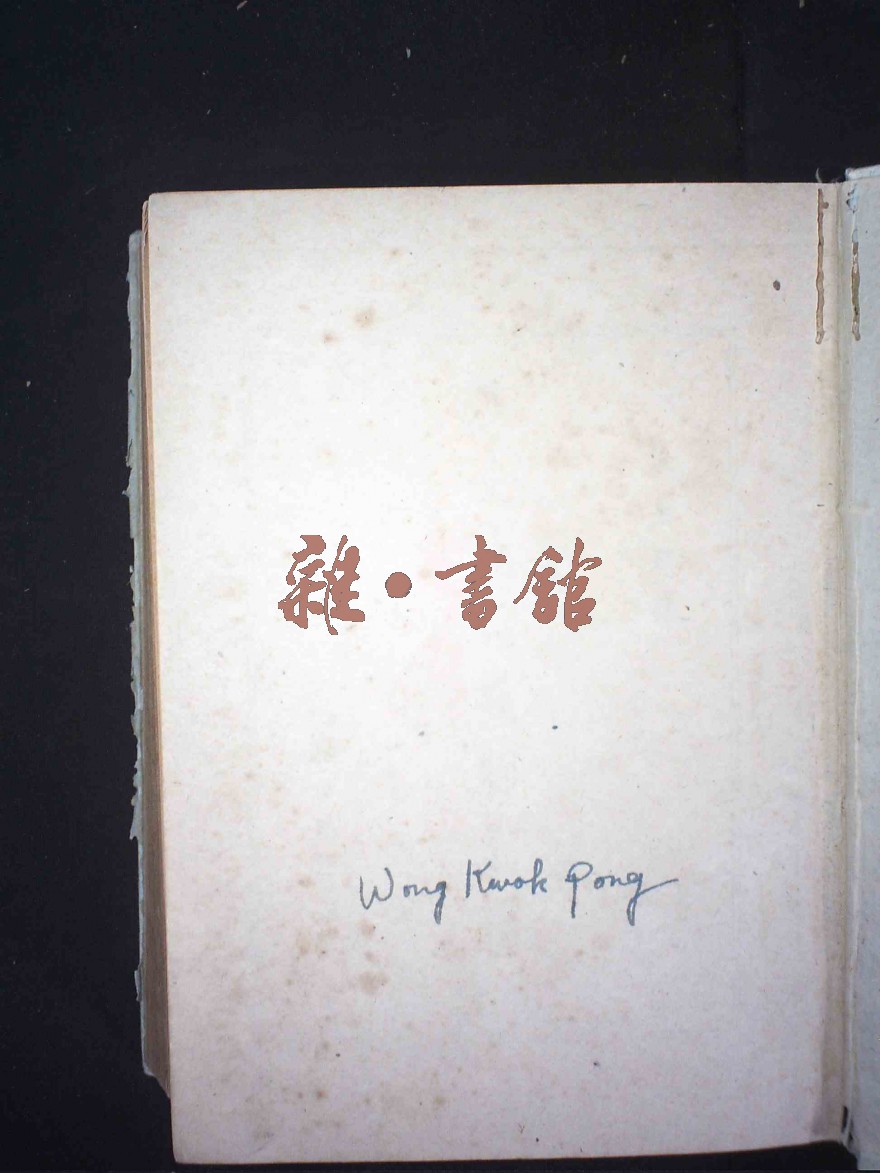 雜·書館
Wong Kwok Pong